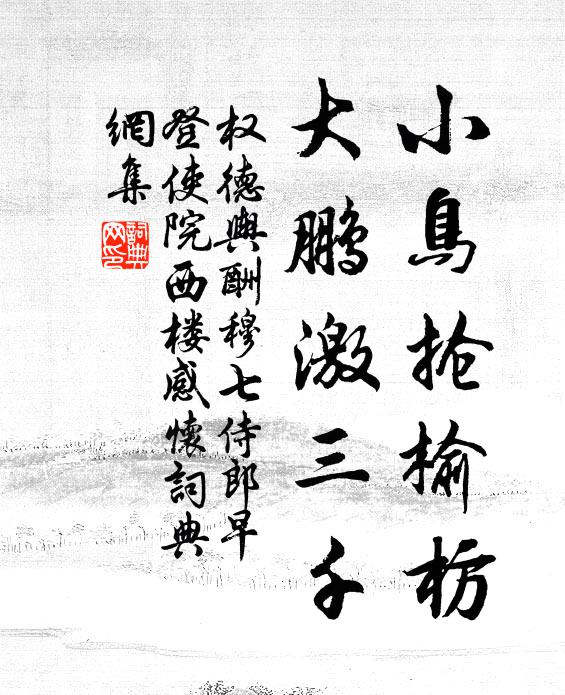 小鳥抢榆枋
大鹏激三千
权德輿酬穆七侍郎早
登使院西楼感懷詞典
網集
詞典
网印